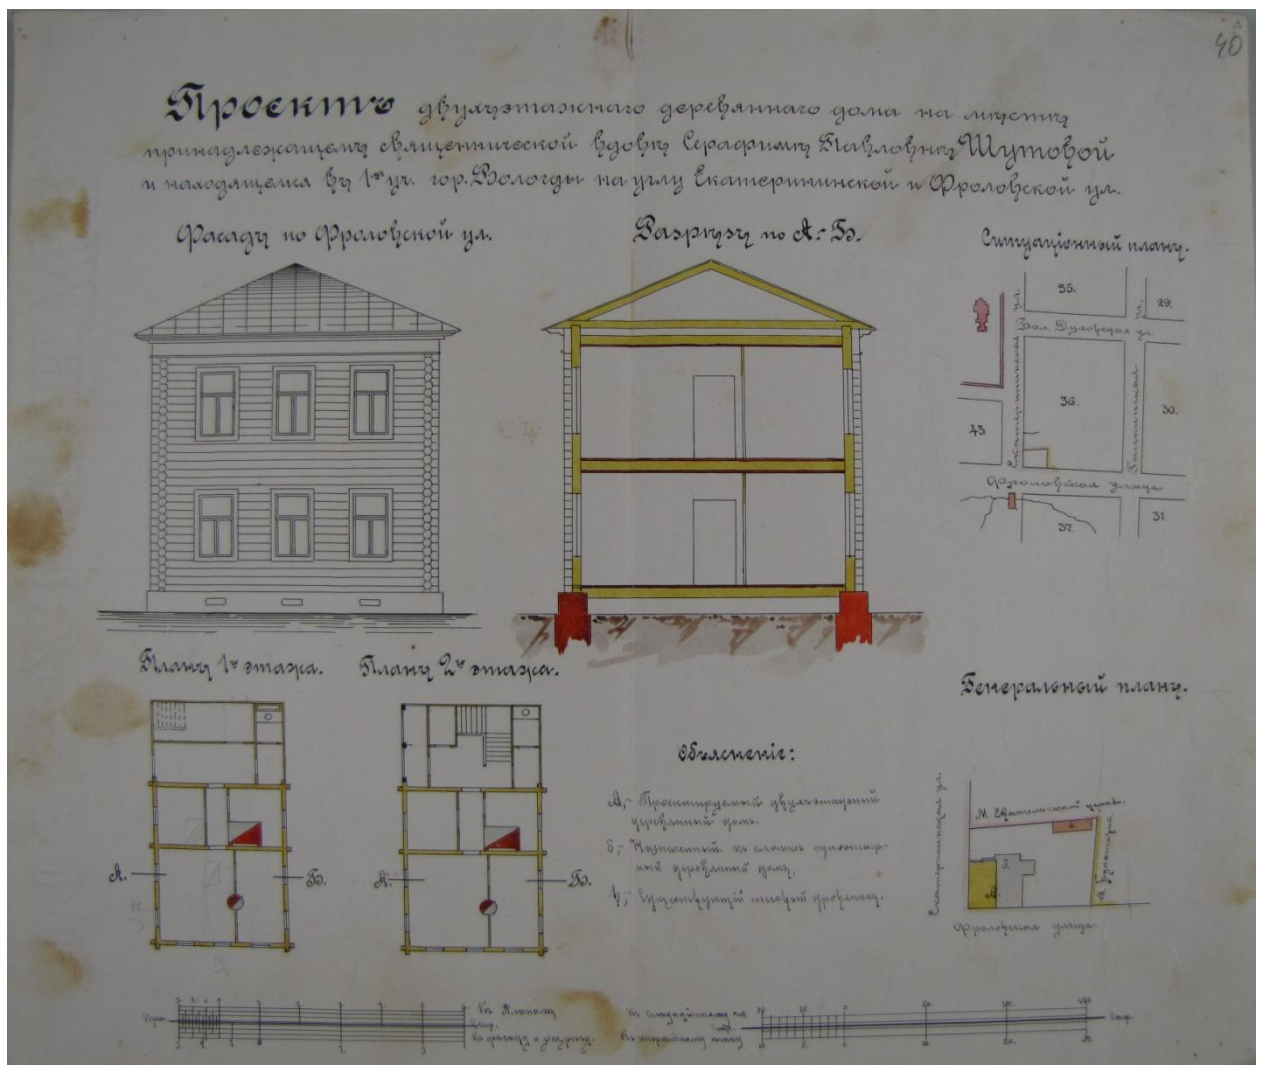 40
Проектъ двухъэтажнаго деревяннаго дома на мѣстѣ
принадлежащемъ священнической вдовѣ Серафимѣ Павловнѣ Шутовой
и находящемся въ 1ой уч. гор. Вологды на углу Екатерининской и Фроловской ул.
Фасадъ по Фроловской ул.
Разрѣзъ по А.-Б.
Ситуаціонный планъ.
35.
29.
Екатерининская ул.
Бол. Духовская ул.
Галкинская ул.
36.
30.
43.
Фроловская улица
37.
31.
Планъ 1го этажа.
Планъ 2го этажа.
А.
Б.
А.
Б.
Объясненіе:
А,- Проектируемый двухъэтажный
деревянный домъ.
б,- Назначенный къ сломкѣ одноэтаж-
ный деревянный домъ,
в,- Существующій дровяникъ.
Генеральный планъ.
Екатерининская ул.
М. церкви.
в.
б.
А.
М.
Фроловская улица
Къ планамъ
Къ фасаду и разрѣзу.
Къ ситуаціонному пл.
Къ генеральному плану
Саж.